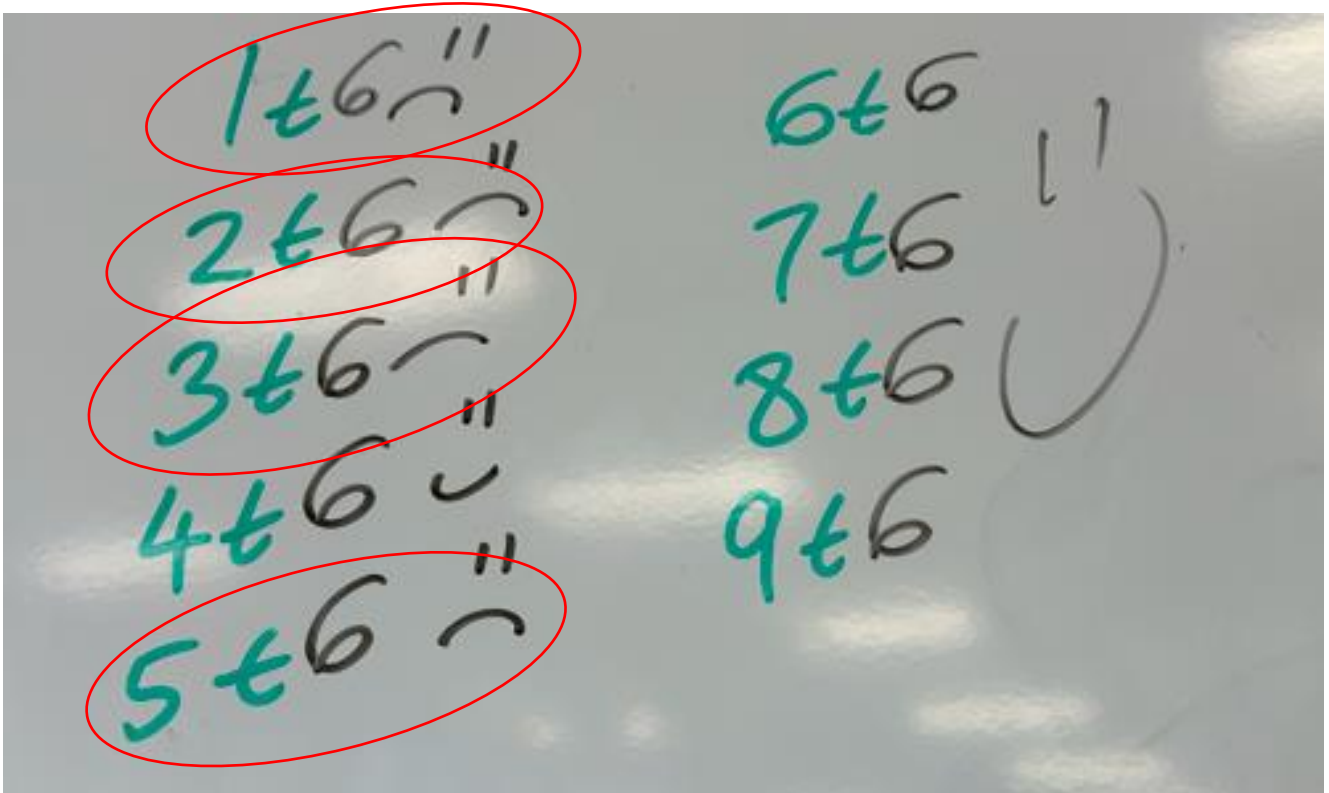 1t6
2t6
3t6
4t6
5t6
6t6
7t6
8t6
9t6